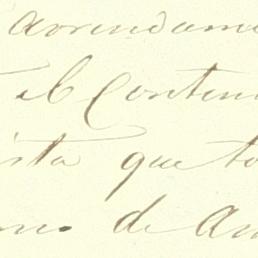 arrendame
el Conten
ista que to
nos de An